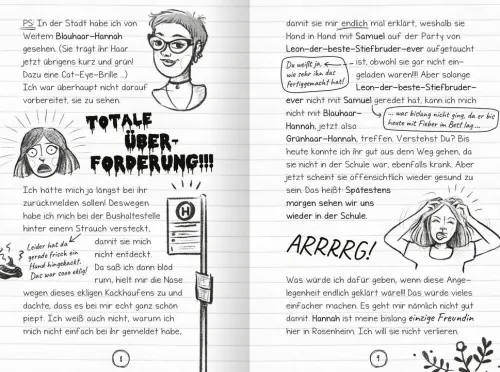 PS: In der Stadt habe ich von
Weitem Blauhaar-Hannah
gesehen. (Sie trägt ihr Haar
jetzt übrigens kurz und grün!
Dazu eine Cat-Eye-Brille ...)
Ich war überhaupt nicht darauf
vorbereitet, sie zu sehen.
TOTALE
ÜBER-
FORDERUNG!!!
Ich hätte mich ja längst bei ihr
zurückmelden sollen! Deswegen
habe ich mich bei der Bushaltestelle
hinter einem Strauch versteckt,
damit sie mich
nicht entdeckt.
Da saß ich dann blöd
rum, hielt mir die Nase
wegen dieses ekligen Kackhaufens zu und
dachte, dass es bei mir echt ganz schön
piept. Ich weiß auch nicht, warum ich
mich nicht einfach bei ihr gemeldet habe,
Leider hat da
gerade frisch ein
Hund hingekackt.
Das war sooo eklig!
H
8
damit sie mir endlich mal erklärt, weshalb sie
Hand in Hand mit Samuel auf der Party von
Leon-der-beste-Stiefbruder-ever aufgetaucht
ist, obwohl sie gar nicht ein-
geladen waren!!!! Aber solange
Leon-der-beste-Stiefbruder-
ever nicht mit Samuel geredet hat, kann ich mich
nicht mit Blauhaar-
Hannah, jetzt also
Grünhaar-Hannah, treffen. Verstehst Du? Bis
heute konnte ich ihr gut aus dem Weg gehen, da
sie nicht in der Schule war, ebenfalls krank. Aber
jetzt scheint sie offensichtlich wieder gesund zu
sein. Das heißt: Spätestens
morgen sehen wir uns
wieder in der Schule.
Du weißt ja,
wie sehr ihn das
fertiggemacht hat!
... was bislang nicht ging, da er bis
heute mit Fieber im Bett lag ...
ARRRRG!
Was würde ich dafür geben, wenn diese Ange-
legenheit endlich geklärt wäre!!! Das würde vieles
einfacher machen. Es geht mir nämlich nicht gut
damit. Hannah ist meine bislang einzige Freundin
hier in Rosenheim. Ich will sie nicht verlieren.
9